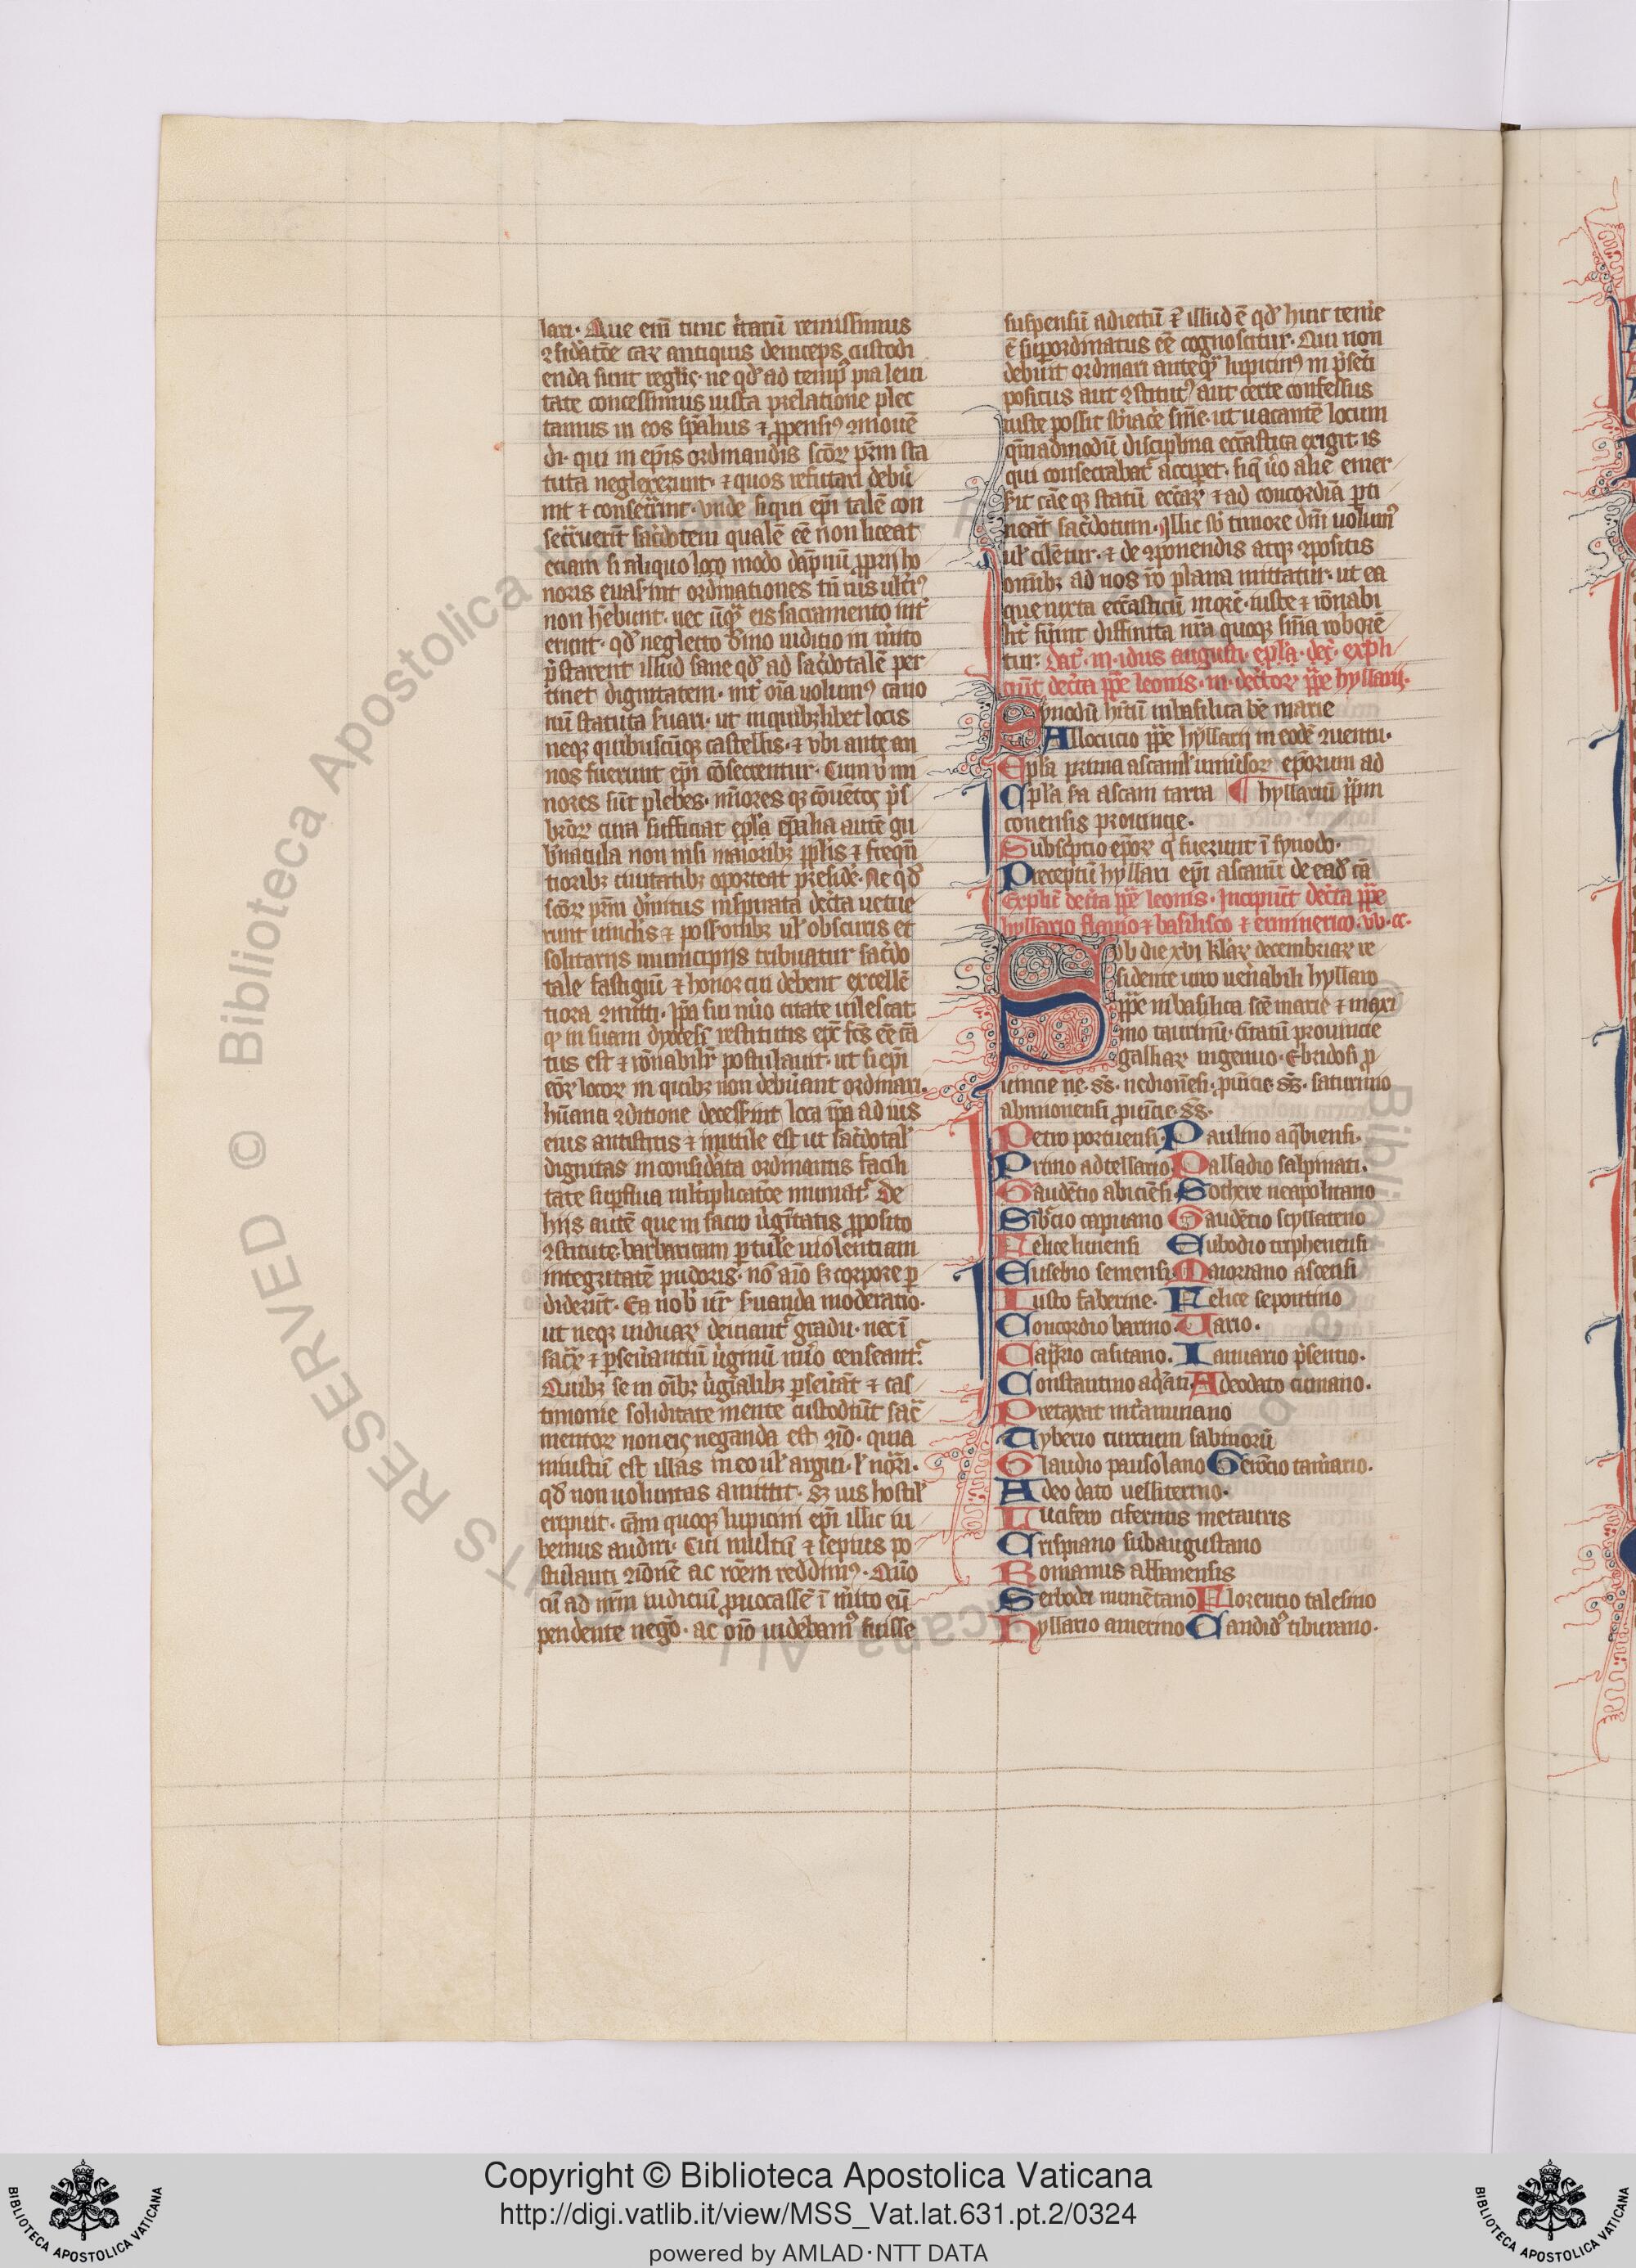 lari. Que eni̅ tunc it̾atu̅ remissimus
ꝯsid̾ato̅e car̅ antiquis deinceps custodi
enda sunt regl̾is. ne qd̾ ad temp᷒ pia leni
tate concessimus iusta p̾relatione plec
tamus in eos sp̅alius ⁊ ꝓpensi᷒ ꝯmoue̅
di. qui in ep̅is ordinandis sc̅oꝝ pr̅m sta
tuta neglexerunt. ⁊ quos refutari debu̾
int ⁊ consecr̾int. vnde siqui ep̅i tale̅ con
secr̾uerit sac̾dotem quale̅ e̅e̅ non liceat
etiam si aliquo loco modo da̅pnu̅ ꝓprij ho
noris euas̾int ordinationes tn̅ ius ult̾i᷒
non h̾ebunt. nec u̅qꝫ eis sacramento int̾
erunt. qd̾ neglecto diuino iuditio in m̾ito
p̾starent illud sane qd̾ ad sac̾dotale̅ per
tinet dignitatem. int̾ oi̅a uolum᷒ cano
nu̅ statuta s̾uari. ut in quibꝫlibet locis
neqꝫ quibuscu̅qꝫ castellis. ⁊ vbi ante an
nos fuerunt ep̅i co̅secrentur. Cum v̾ mi
nores su̅t plebes. mi̅ores qꝫ co̅uent᷒ p̾s
bit̾oꝝ cura sufficiat epl̾a ep̅alia aute̅ gu
b̾nacula non nisi maioribꝫ pp̅lis ⁊ freque̅
tioribꝫ ciuitatibꝫ oporteat p̾residē. Ne qd̾
sc̅oꝝ pr̅m diuinitus inspirata dec̾ta uetue
runt uiculis ⁊ possessio̅ibꝫ ul̾ obscuris et
solitariis municipijs tribuatur sac̾do
tale fastigiu̅ ⁊ honor cui debent excelle̅
tiora ꝯmitti. ip̅a sui nu̾io citate uilescat
qꝫ in suam dyocesi̅ restitutis ep̅c fc̅s e̅e̅ ca̅
tus est ⁊ ro̅nabilit̾ postulauit. ut si ep̅i
eoꝝ locoꝝ in quibꝫ non debuerant ordinari.
hu̅ana ꝯditione decess̾int loca ip̅a ad ius
eius antistitis ⁊ inutile est ut sac̾dotal̾
dignitas inconsid̾ata ordinantis facili
tate sup̾flua ml̾tiplicato̅e muniat᷒. De
hiis aute̅ que in sacro u̾ginitatis ꝓposito
ꝯstitute. barbaricam p̾tule̅ uiolentiam
integritate̅ pudoris. no̅ aio̅ sꝫ corpore p̾
diderūt. Ea nob̾ ur̅ s̾uanda moderatio.
ut neqꝫ uiduaꝝ deiciant᷒ gradu. nec i̅
sacr̾ ⁊ p̾seuerantiu̅ u̾ginu̅ nu̾io censeant᷒.
Quibꝫ se in oi̅bꝫ u̾ginalibꝫ p̾seuera̅t ⁊ cas
timonie soliditate mente custodiu̅t sac̾
mentoꝝ non eis neganda est ꝯio̅. quia
iniustu̅ est illas in eo ul̾ argui. l̾ notari.
qd̾ non uoluntas amittit. sꝫ uis hostil̾
eripuit. ca̅m quoqꝫ lupicini ep̅i illic iu
bemus audiri. Cui multu̅ ⁊ sepius po
stulanti ꝯio̅ne̅ ac ro̅em reddim᷒. Quo̅
cu̅ ad nr̅m iudiciu̅ ꝓuocasse̅ i̅ m̾ito eu̅
pendente nego̅. ac oi̅o uidebam᷒ fuisse
suspensu̅ adiectu̅ e̅t illud e̅ qd̾ huic tem̾e
e̅ sup̾ordinatus e̅e̅ cognoscitur. Qui non
debuit ordinari anteqꝫ lupicin᷒ in p̾senti
positus aut ꝯstitut᷒ aut certe confessus
iuste possit sb̾iace̅ sn̅ie. ut uacante̅ locum
que̅admodu̅ disciplina ecc̅astica exigit is
qui consecrabat᷒ accip̾et. siqꝫ u̾o alie emer
s̾it ca̅e qꝫ statu̅ ecc̅aꝝ ⁊ ad concordia̅ p̾ti
nea̅t sac̾dotum. Illic sb̾ timore dni̅ uolum᷒
ul̾ cile̅tur. ⁊ de ꝯponendis atqꝫ ꝯpositis
omnibꝫ ad nos ro̅ plana mittatur. ut ea
que iuxta ecc̅asticu̅ more̅. iuste ⁊ ro̅nabi
lit̾ fu̾int diffinita nr̅a quoqꝫ sn̅ia robore̅
tur. Dat̾. iii. idus augusti. epl̾a. dec̾. expli
ciu̅t dec̾ta pp̅e leonis. in. dec̾toꝝ pp̅e hyllarij.
Synodu̅ hi̅tu̅ in basilica be̅ marie
Allocucio pp̅e hyllarij in eode̅ ꝯuentu.
Epl̾a prima ascanii ꝯuniu̾soꝝ ep̅orum ad
Epl̾a s̾a ascani tarra ¶ hyllariu̅ pp̅m
conensis prouincie.
Subsc̾iptio ep̅oꝝ q̾ fuerunt i̅ synodo.
Preceptu̅ hyllari ep̅i ascaniu̅ de ead̾ ca̅
Explic̾ dec̾ta pp̅e leonis. Incipiu̅t dec̾ta pp̅e
hyllario flauio ⁊ basilisco ⁊ erminerico. vv. cc.
Sub die xvi klaꝝ decembriaꝝ re
sidente uiro uen̾abili hyllaro
pp̅e in basilica sce̅ marie ⁊ maxi
mo taurinu̅. ciuitatu̅ prouincie
galliaꝝ ingenuo. Ebridosi ꝓ
uincie ne. ss̅. nedione̅si. ꝓui̅cie. ss̅. saturnino
abinionensi ꝓui̅cie. ss̅.
Petro portuensi. Paulino aq̾biensi.
Primo adtellario. Palladio salpinati.
Gaude̅tio abicie̅si Sothere neapolitano
Sib̾cio capuano Gaude̅tio scyllateno
Felice lunensi Eubodio trephenensi
Eusebio semensi. Maioriano ascensi
Iusto faberine. Felice sepontino
Concordio barino. Tario.
Cap̾rio casitano. Ianuario p̾sentio.
Constantino aq̾ati. Adeodato cumano.
Pretaxat int̾aminano
Tyberio turcium sabinoru̅
Glaudio pausolano Gero̅cio tam̾ario.
Adeo dato uelliterno.
Lucifero cifernus metauris
Crispiano subaugustano
Romanus albanensis
Serbodei nume̅tano Florentio talesino
Hyllario amerino Candid᷒ tiburano.
Copyright © Biblioteca Apostolica Vaticana
http://digi.vatlib.it/view/MSS_Vat.lat.631.pt.2/0324
powered by AMLAD·NTT DATA
BIBLIOTECA APOSTOLICA VATICANA
BIBLIOTECA APOSTOLICA VATICANA